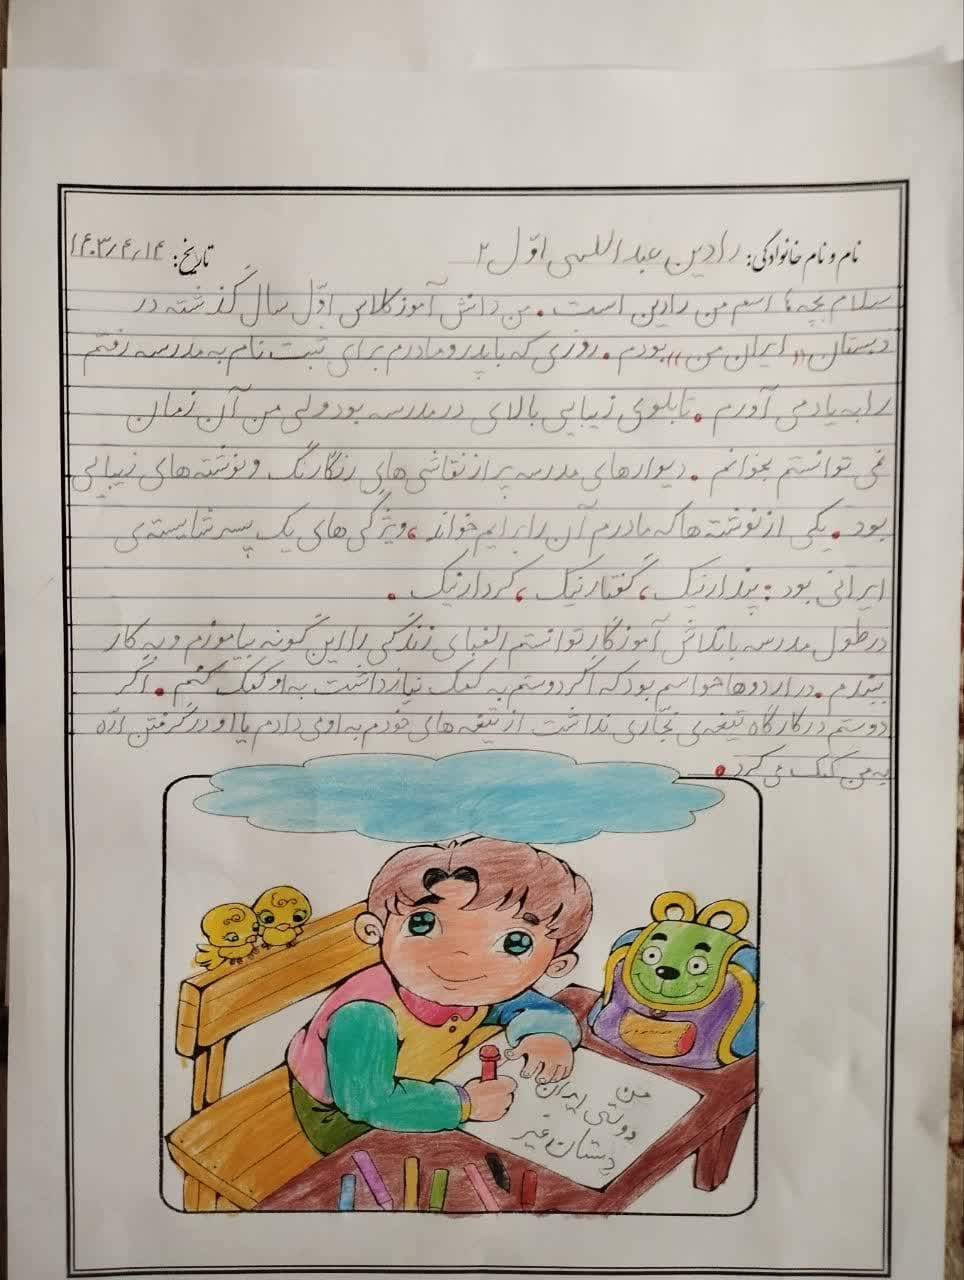 نام و نام خانوادگی: رادین عبداللهی اوّل ۲ تاریخ: ۱۴۰۳/۴/۱۴
سلام بچه ها اسم من رادین است. من دانش آموز کلاس اوّل سال گذشته در
دبستان «ایران من» بودم. روزی که با پدر و مادرم برای ثبت نام به مدرسه رفتم
را به یاد می آورم. تابلوی زیبایی بالای در مدرسه بود ولی من آن زمان
نمی توانستم بخوانم. دیوارهای مدرسه پر از نقاشی های رنگارنگ و نوشته های زیبایی
بود. یکی از نوشته ها که مادرم آن را برایم خواند، ویژگی های یک پسر شایسته ی
ایرانی بود: پندار نیک، گفتار نیک، کردار نیک.
در طول مدرسه با تلاش آموزگار توانستم الفبای زندگی را این گونه بیاموزم و به کار
ببندم. در اردوها حواسم بود که اگر دوستم به کمک نیاز داشت به او کمک کنم. اگر
دوستم در کارگاه تیغه ی نجّاری نداشت از تیغه های خودم به او می دادم یا او در گرفتن ارّه
به من کمک می کرد.
من
ایران
دبستان غیر